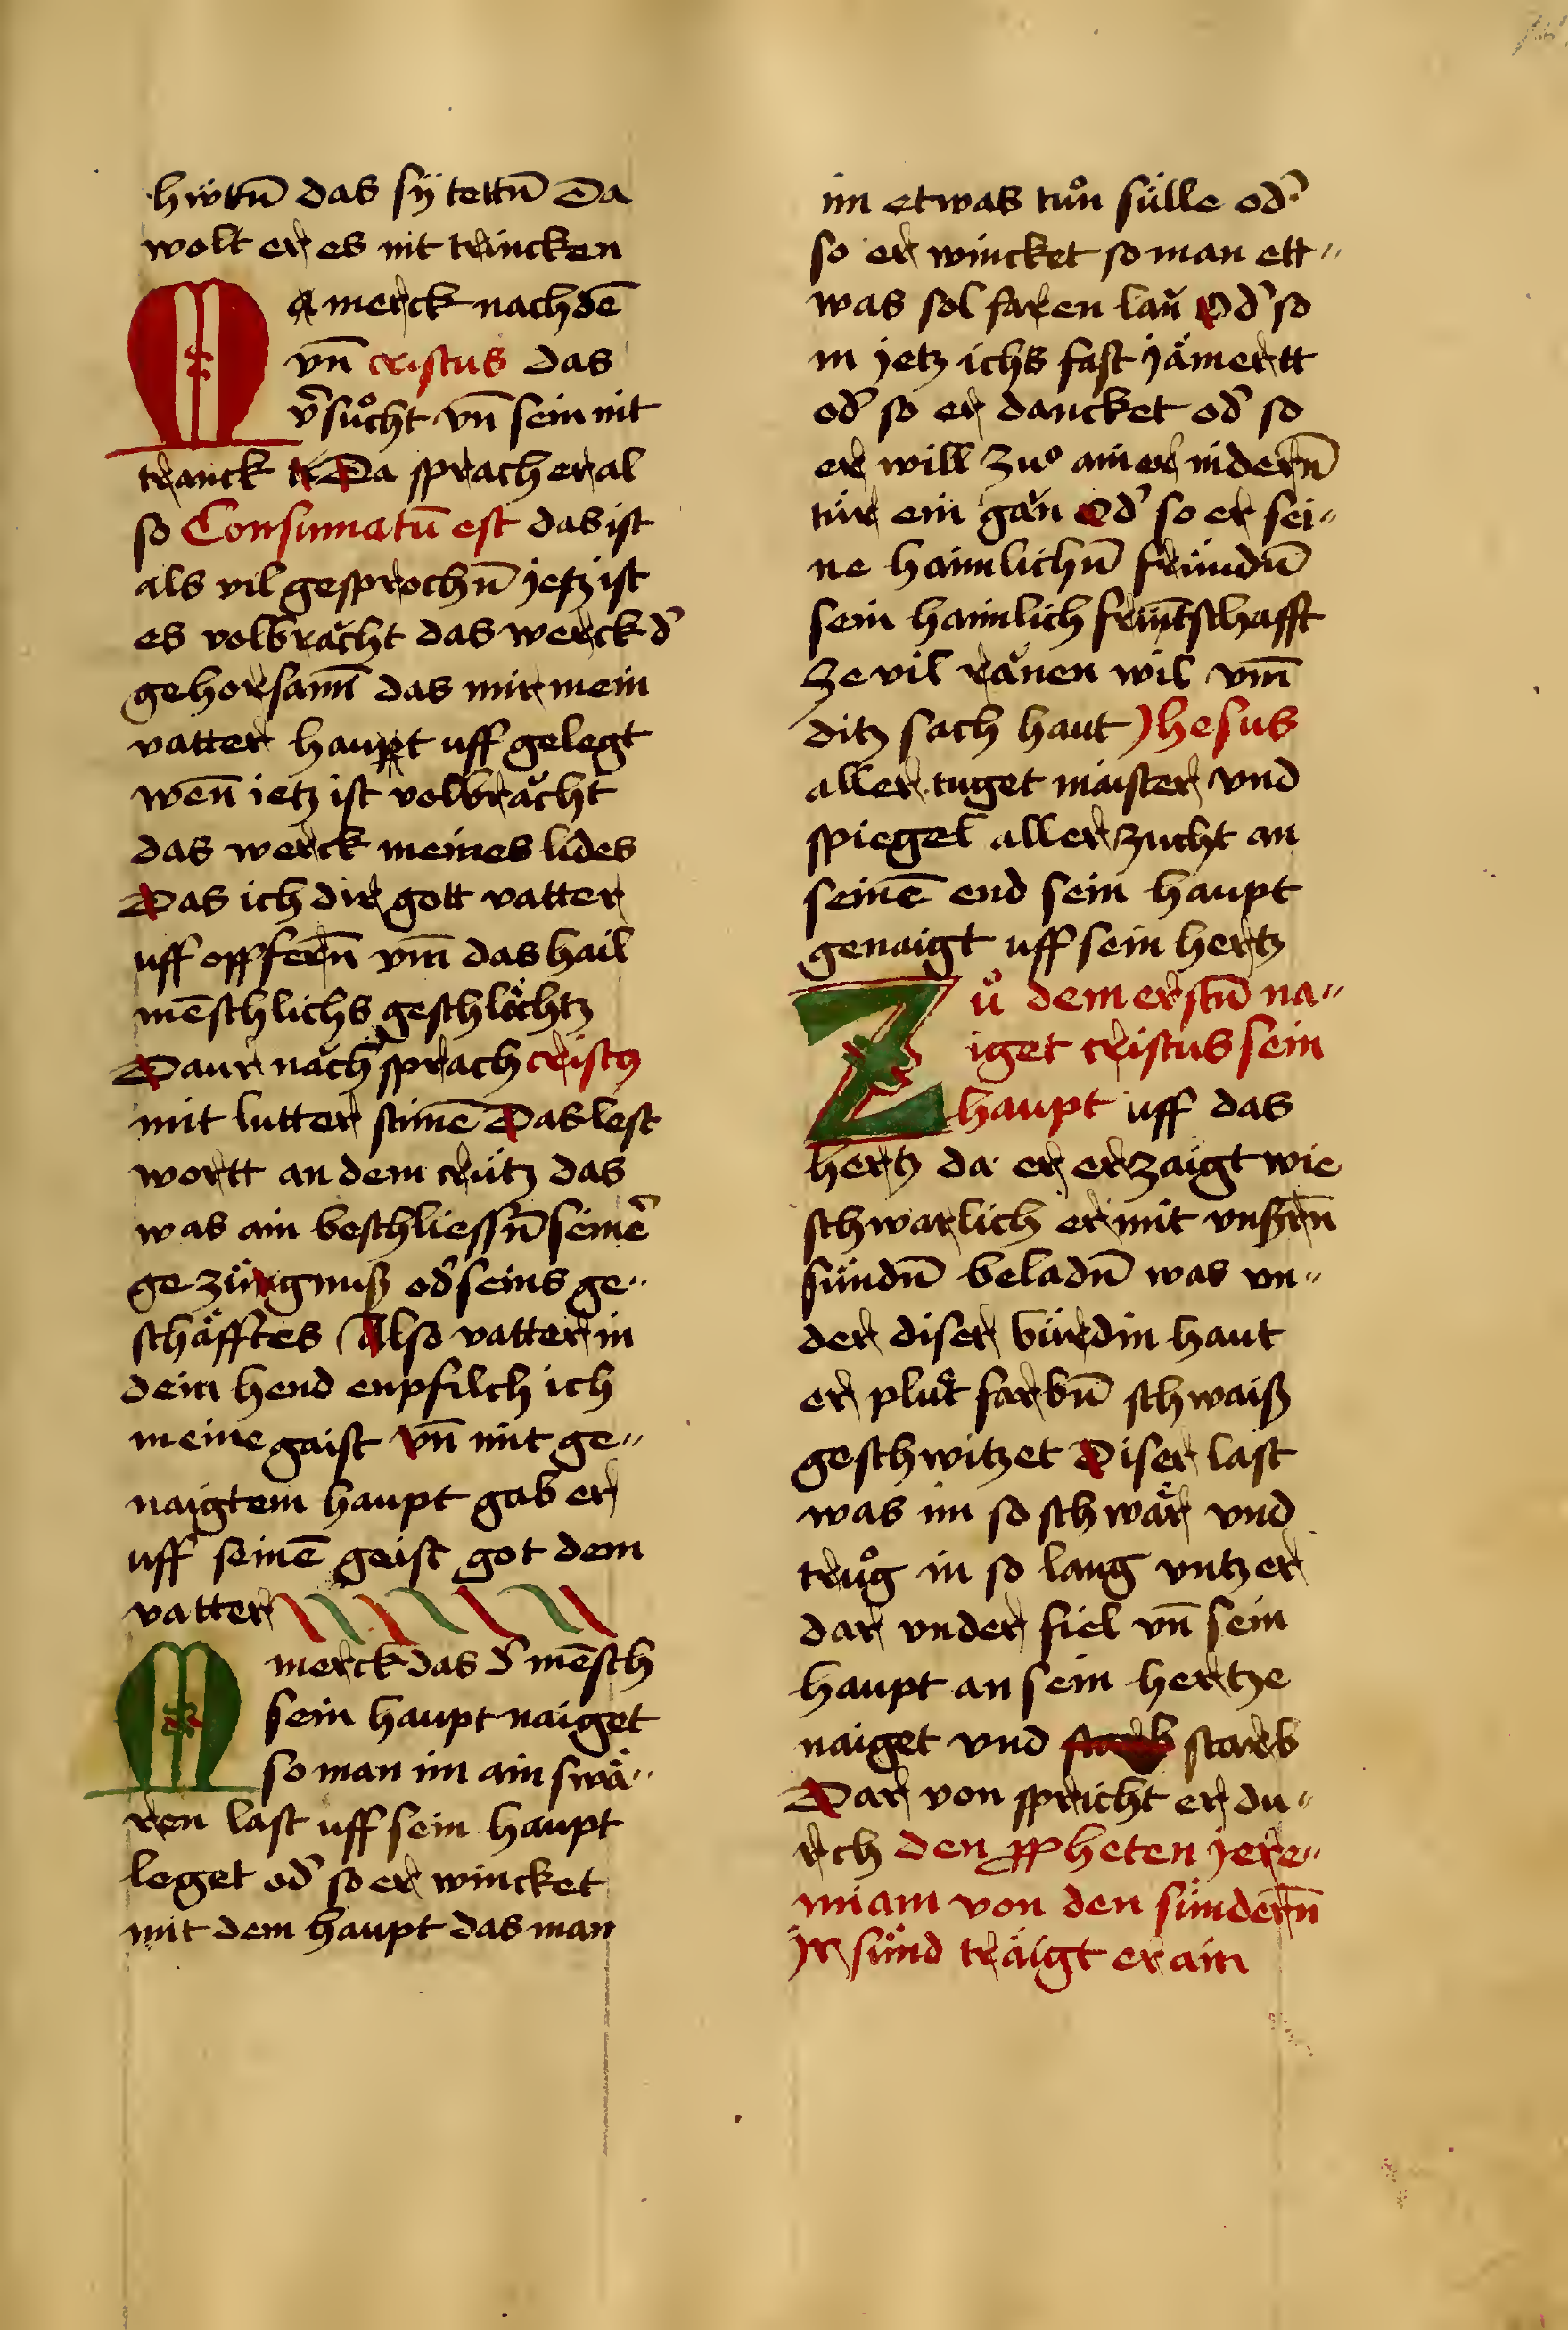 hiw̎tn̄ das sÿ tettn̄ Da
wolt er es nit trincken
M A merck nach dē
vn̄ cristus das
v̾sůcht vn̄ sein nit
tranck Da sprach er al
so Consumatū est das ist
als vil gesprochn̄ jetz ist
es volbrǎcht das werck d̾
gehorsam̄ das mir mein
vatter haut uff gelegt
wen̄ ietz ist volbrǎcht
das werck meines lides
Das ich dir gott vatter
uff opffern̄ vm̄ das hail
mēschlichs geschlächtz
Daur nǎch sprach cristꝰ
mit lutter stimē Das lest
wortt an dem crütz das
was ain beschliessn̄ seine̾
ge zügnuß od̾ seins ge〃
schäfftes Also vatter in
dein hend enpfilch ich
meine gaist vn̄ mit ge〃
naigtem haupt gab er
uff seinē geist got dem
vatter
M merck das d̾ mēsch
sein haupt naiget
so man im ain swä〃
ren last uff sein haupt
leget od̾ so er wincket
mit dem haupt das man
im etwas tůn sülle od̾
so er wincket so man ett〃
was sol faren lǎn Od̾ so
in jetz ichs fast jämertt
od̾ so er dancket od̾ so
er will zuͦ ainer nidern̄
tür ein gǎn Od̾ so er sei〃
ne haimlichn̄ fründn̄
sein haimlich frūntschafft
ze vil rǎnen wil vm̄
ditz sach haut Jhesus
aller tuget maister vnd
spiegel aller zucht an
seinē end sein haupt
genaigt uff sein hertz
Zů dem erstn̄ na〃
iget cristus sein
haupt uff das
hertz da er erzaigt wie
schwarlich er mit vnßrn̄
sündn̄ beladn̄ was vn〃
der diser bürdin haut
er plůt farbn̄ schwaiß
geschwitzet Diser last
was im so schwär vnd
trůg in so lang vntz er
dar vnder fiel vn̄ sein
haupt an sein hertze
naiget vnd starb starb
Dar von spricht er du〃
rch den ꝓpheten jere〃
miam von den sündern̄
Jr sünd träigt er ain